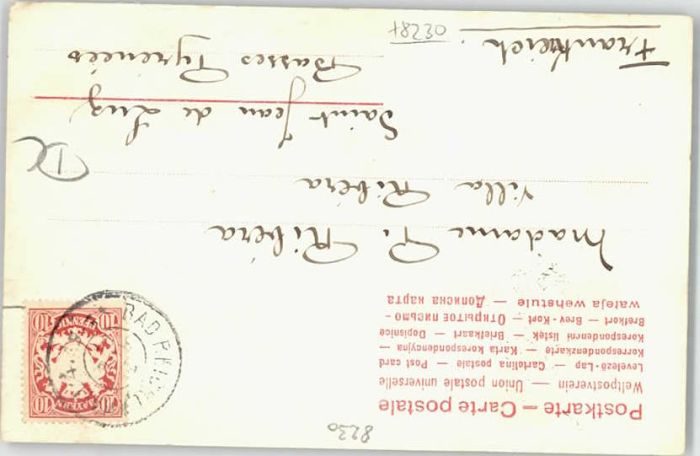 8230
Postkarte — Carte postale
Weltpostverein — Union postale universelle
Levelező-Lap — Cartolina postale — Post card
Korrespondenzkarte — Karta korespondencyjna —
Korrespondenční lístek — Briefkaart — Dopisnice
Brefkort — Brev-Kort — Открытое письмо —
wateja wehetule — Дописна карта
BAYERN
10
10
10
10
BAD
Madame P. Ribéra
Villa Ribéra
Saint Jean de Luz
Basses Pyrénées
Frankreich